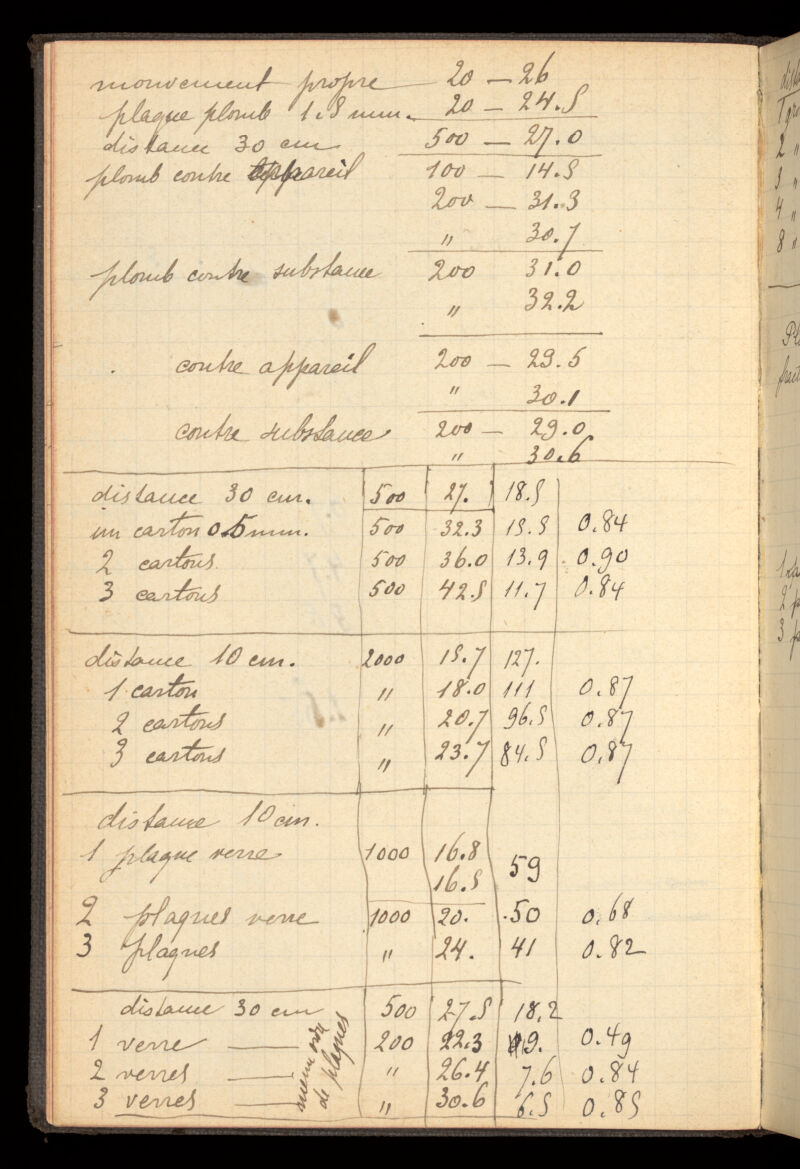 mouvement propre 20 — 26
plaque plomb 1.5 mm. 20 — 24.5
distance 30 cm 500 — 27.0
plomb contre appareil 100 — 14.5
200 — 31.3
" 30.7
plomb contre substance 200 31.0
" 32.2
contre appareil 200 — 29.5
" 30.1
contre substance 200 — 29.0
" 30.6
distance 30 cm. 500 27. 18.5
un carton 0.5 mm. 500 32.3 15.5 0.84
2 cartons 500 36.0 13.9 0.90
3 cartons 500 42.5 11.7 0.84
distance 10 cm. 2000 15.7 127.
1 carton " 18.0 111 0.87
2 cartons " 20.7 96.5 0.87
3 cartons " 23.7 84.5 0.87
distance 10 cm.
1 plaque verre 1000 16.8 59
16.5
2 plaques verre 1000 20. 50 0.68
3 plaques " 24. 41 0.82
distance 30 cm 500 27.5 18.2
1 verre 200 22.3 9. 0.49
2 verres " 26.4 7.6 0.84
3 verres " 30.6 6.5 0.85
de plaques
1
2 "
3 "
4 "
8 "
2
3